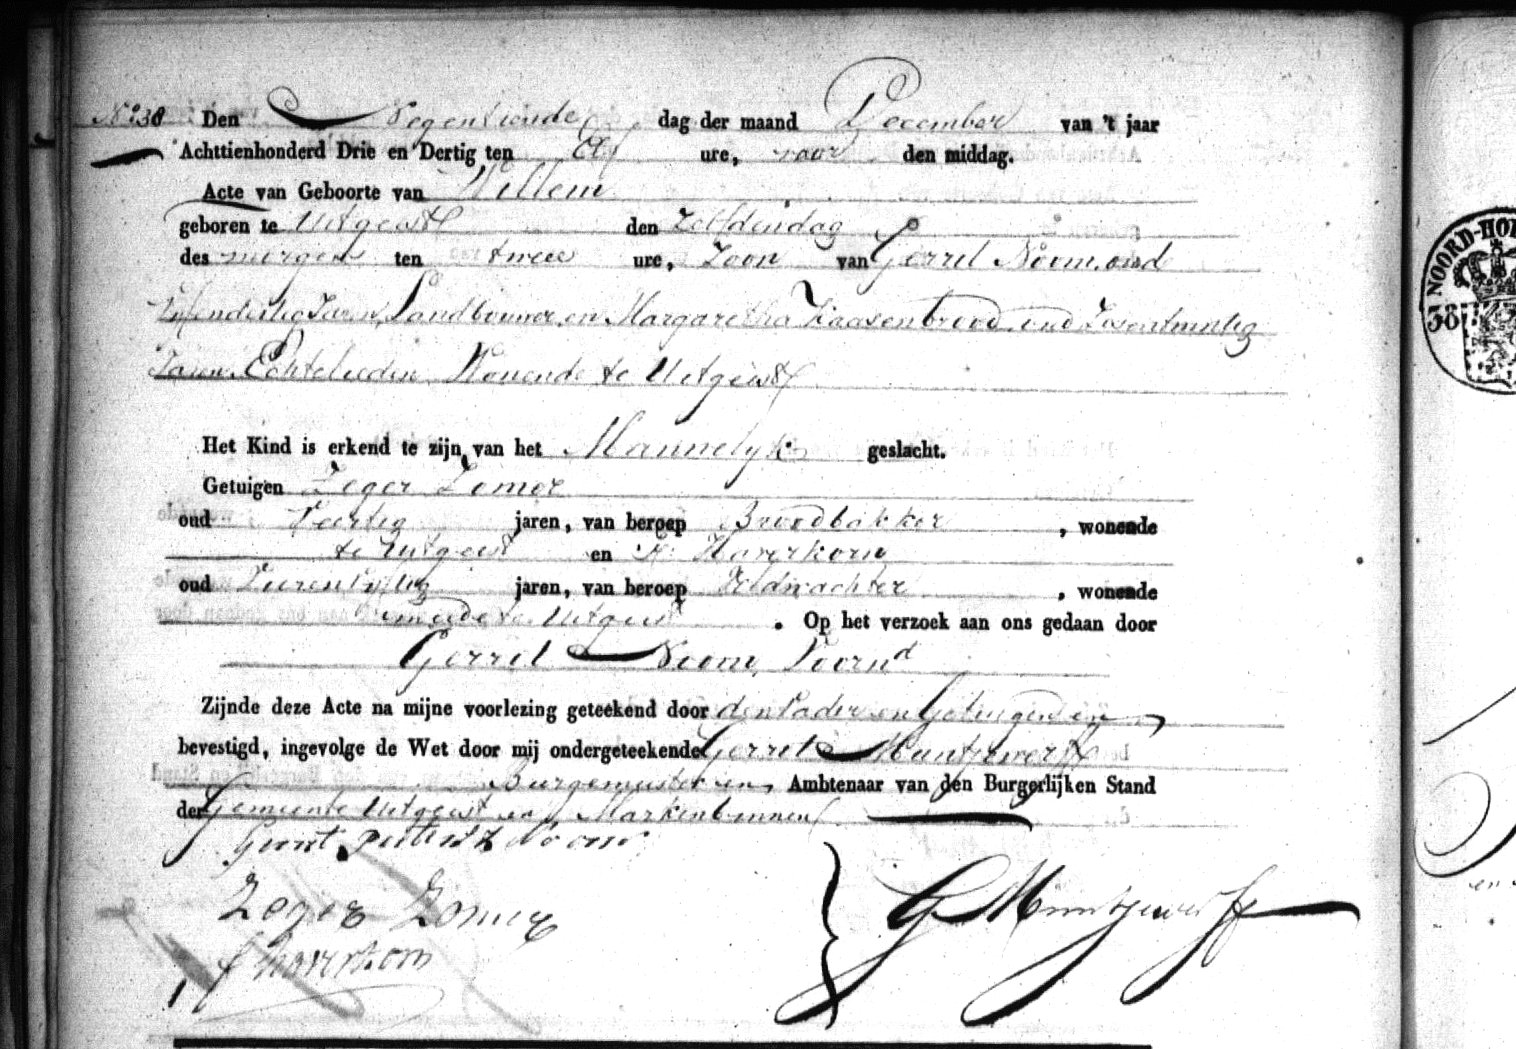 No 38 Den Negentiende dag der maand December van 't jaar
Achttienhonderd Drie en Dertig ten Elf ure, voor den middag.
Acte van Geboorte van Willem
geboren te Uitgeest den Zelfden dag
des morgens ten twee ure, Zoon van Gerrit Noom, oud
Vyfendertig Jaren, Landbouwer, en Margaretha Kaasenbrood oud Zesentwintig
Jaren Echtelieden Wonende te Uitgeest
Het Kind is erkend te zijn van het Mannelyk geslacht.
Getuigen Zeger Zomer
oud Veertig jaren, van beroep Broodbakker, wonende
te Uitgeest en Haverkorn
oud jaren, van beroep Veldwachter, wonende
mede te Uitgeest. Op het verzoek aan ons gedaan door
Gerrit Noom, Voornd
Zijnde deze Acte na mijne voorlezing geteekend door den Vader en Getuigen en
bevestigd, ingevolge de Wet door mij ondergeteekende Gerrit Muntjewerff
Burgemeester en, Ambtenaar van den Burgerlijken Stand
der Gemeente Uitgeest en Markenbinnen
Gerrit Noom
Zeger Zomer
Haverkorn
G Muntjewerff
NOORD-HOL